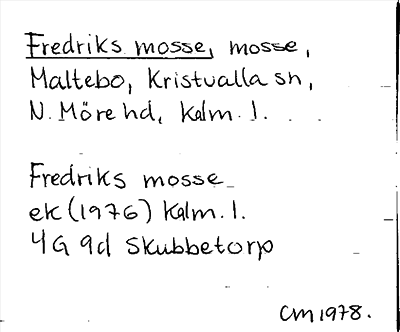 Fredriks mosse, mosse,
Maltebo, Kristvalla sn,
N. Möre hd, Kalm. l. . .
Fredriks mosse
ek (1976) Kalm. l.
4G 9d Skubbetorp
CM 1978.